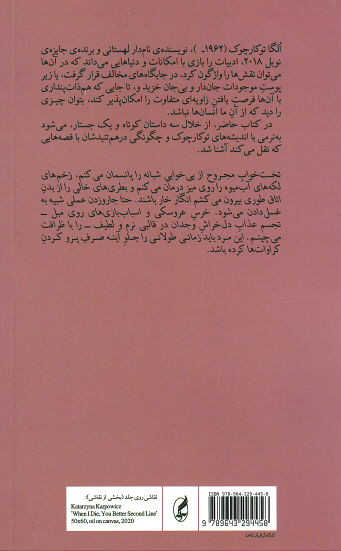 اُلگا توکارچوک (۱۹۶۲ـ )، نویسنده‌ی نام‌دار لهستانی و برنده‌ی جایزه‌ی
نوبل ۲۰۱۸، ادبیات را بازی با امکانات و دنیاهایی می‌داند که در آن‌ها
می‌توان نقش‌ها را واژگون کرد، در جایگاه‌های مخالف قرار گرفت، یا زیر
پوستِ موجودات جان‌دار و بی‌جان خزید و، تا جایی که هم‌ذات‌پنداری
با آن‌ها فرصتِ یافتنِ زاویه‌ای متفاوت را امکان‌پذیر کند، بتوان چیزی
را دید که از آنِ ما انسان‌ها نباشد.
در کتاب حاضر، از خلال سه داستان کوتاه و یک جستار، می‌شود
به‌نرمی با اندیشه‌های توکارچوک و چگونگی درهم‌تنیدشان با قصه‌هایی
که نقل می‌کند آشنا شد.
تخت‌خوابِ مجروح از بی‌خوابیِ شبانه را پانسمان می‌کنم، زخم‌های
لکه‌های آب‌میوه را روی میز درمان می‌کنم و بطری‌های خالی را از بدنِ
اتاق طوری بیرون می‌کشم انگار خار باشند. حتا جاروزدن عملی شبیه به
غسل‌دادن می‌شود. خرسِ عروسکی و اسباب‌بازی‌های روی مبل ــ
تجسم عذاب دل‌خراشِ وجدان در قالبی نرم و لطیف ــ را با ظرافت
می‌چینم. این مرد باید زمانی طولانی را جلوِ آینه صرفِ پرو کردنِ
کراوات‌ها کرده باشد.
نقاشی روی جلد (بخشی از نقاشی):
Katarzyna Karpowicz
"When I Die, You Better Second Line"
50x60, oil on canvas, 2020
ISBN: 978-964-329-445-8
9 789643 294458